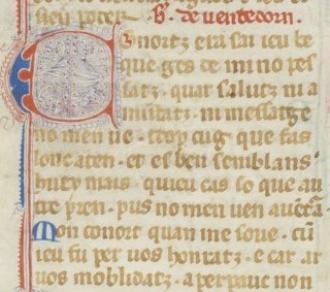 sieu poder B. de uentedorn.
Conortz era sai ieu be
que ges de mi no pes
satz. quar salutz ni a
mistatz. ni messatge
no men ue. trop cug que fas
lonc aten. et es ben semblans
huey mais. quieu cas so que au
tre pren. pus no men uen
Mon conort quan me soue. cū
ieu fui per uos honratz. e car ar
uos moblidatz. a per pauc non